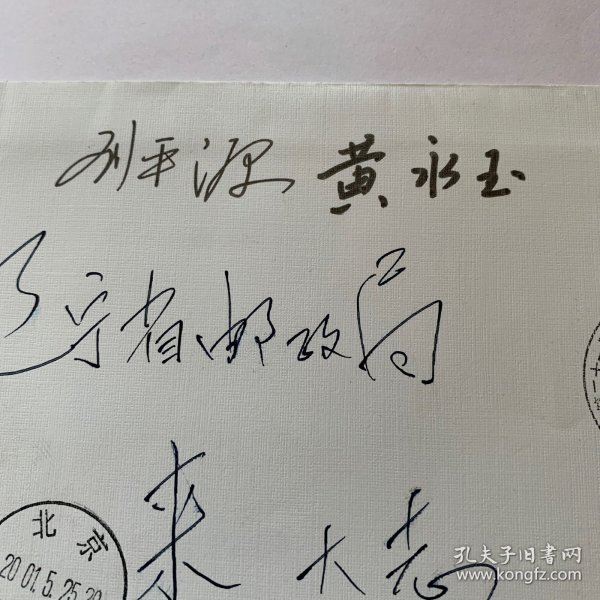 刘平源 黄永玉
辽宁省邮政局
来大志
北京
2001.5.25.20
孔夫子旧书网
www.kongfz.com